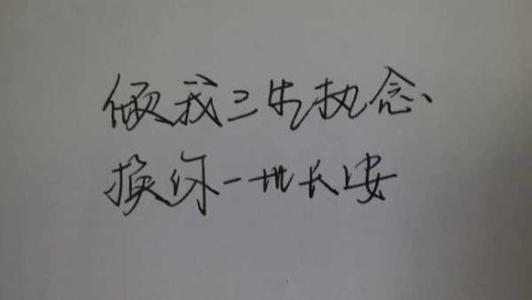 倾我三生执念、
换你一世长安